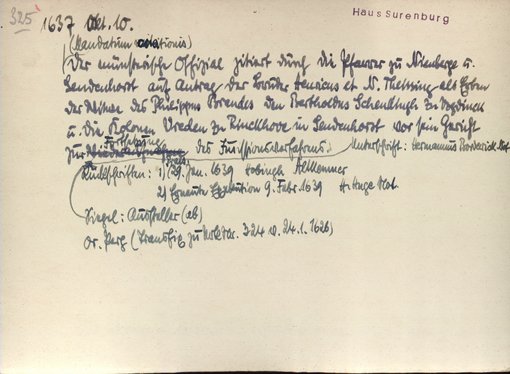 325
Haus Surenburg
1637 Okt. 10.
(Mandatum citationis)
Der münsterische Offizial zitiert durch die Pfarrer zu Nienberge u.
Sendenhorst auf Antrag der Brüder Henricus et N. Thetting als Erben
der Witwe des Philippus Berndes den Bartholdus Schenckingh zu Vogdinck
u. die Kolonen Vreden zu Rinckhove in Sendenhorst vor sein Gericht
zur Fortsetzung des Immissionsverfahrens. Unterschrift: Hermannus Not.
Rückschriften: 1) 29. Jan. 1639
2) Erneute Exekution 9. Febr. 1639 H. Huge Not.
Siegel: Aussteller (ab)
Or. Perg. (Transfix zu Nr. 324 v. 24.1.1626)